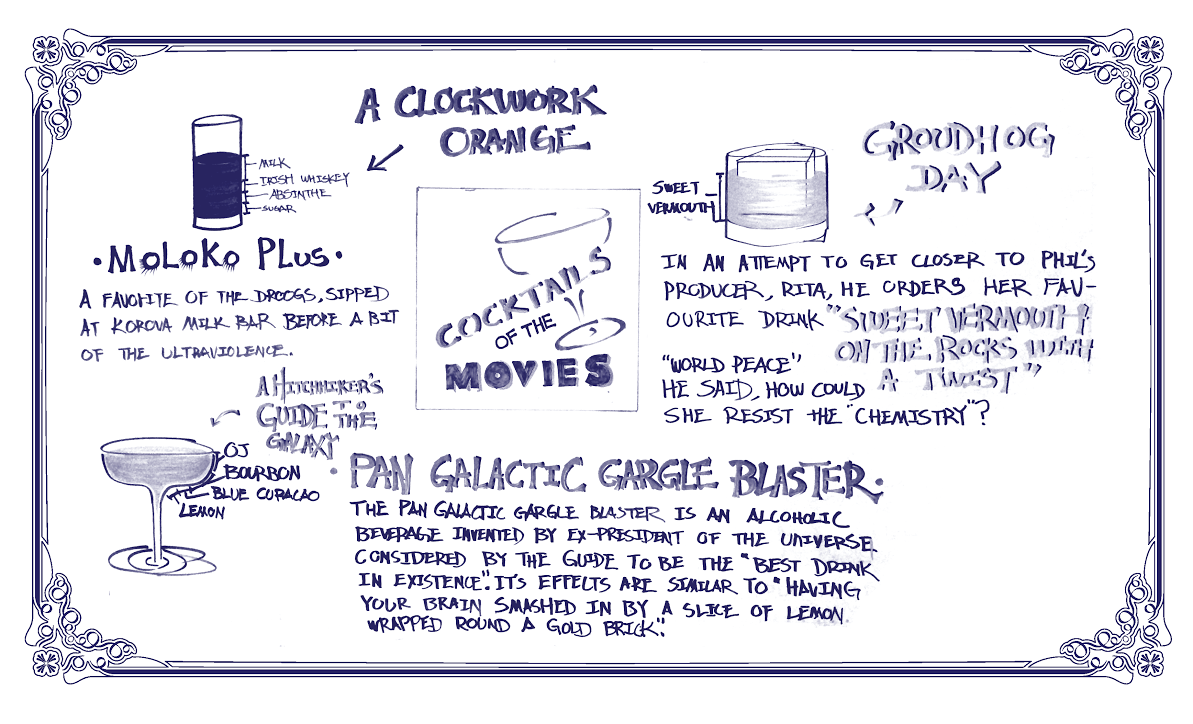 A CLOCKWORK
ORANGE
MILK
IRISH WHISKEY
ABSINTHE
SUGAR
•MOLOKO PLUS•
A FAVORITE OF THE DROOGS, SIPPED
AT KOROVA MILK BAR BEFORE A BIT
OF THE ULTRAVIOLENCE.
COCKTAILS
OF THE
MOVIES
GROUDHOG
DAY
SWEET
VERMOUTH
IN AN ATTEMPT TO GET CLOSER TO PHIL'S
PRODUCER, RITA, HE ORDERS HER FAV-
OURITE DRINK "SWEET VERMOUTH
ON THE ROCKS WITH
A TWIST"
"WORLD PEACE"
HE SAID, HOW COULD
SHE RESIST THE "CHEMISTRY"?
A HITCHHIKER'S
GUIDE TO THE
GALAXY
OJ
BOURBON
BLUE CURACAO
LEMON
•PAN GALACTIC GARGLE BLASTER•
THE PAN GALACTIC GARGLE BLASTER IS AN ALCOHOLIC
BEVERAGE INVENTED BY EX-PRESIDENT OF THE UNIVERSE.
CONSIDERED BY THE GUIDE TO BE THE "BEST DRINK
IN EXISTENCE". IT'S EFFECTS ARE SIMILAR TO "HAVING
YOUR BRAIN SMASHED IN BY A SLICE OF LEMON
WRAPPED ROUND A GOLD BRICK".